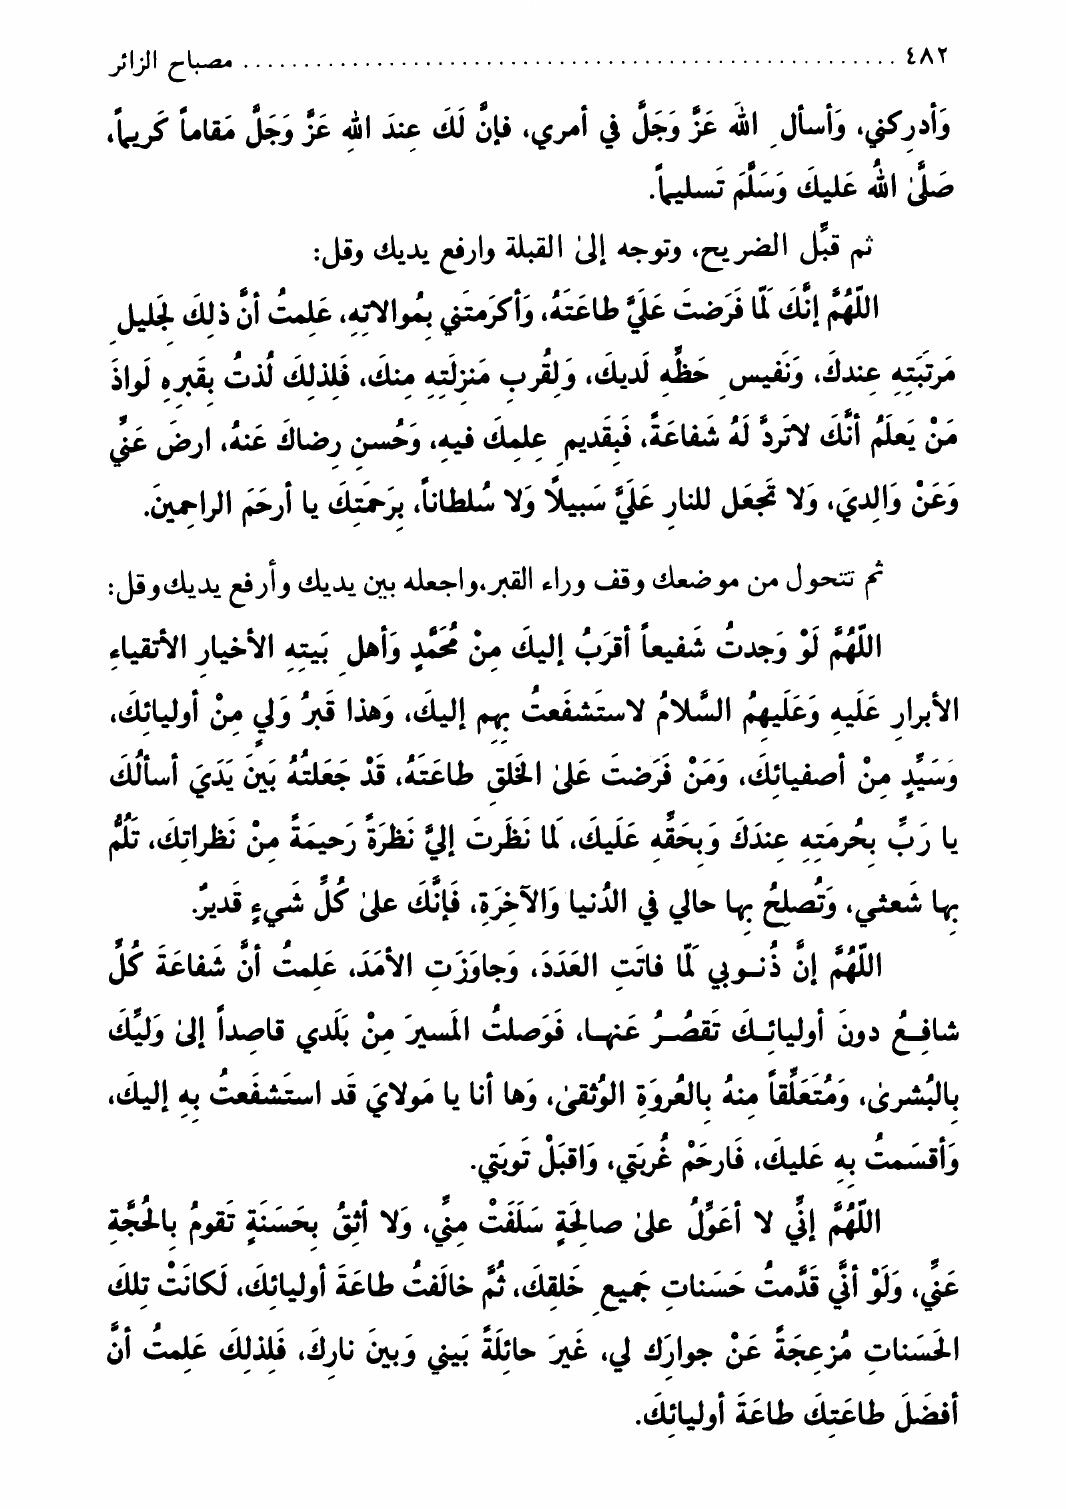 ٤٨٢ ........................................................ مصباح الزائر
وَأدرِكني، وَأسألِ اللهَ عَزَّ وَجَلَّ في أمري، فإنَّ لَكَ عِندَ اللهِ عَزَّ وَجَلَّ مَقاماً كَريماً،
صَلَّىٰ اللهُ عَليكَ وَسَلَّمَ تَسليماً.
ثم قبَّل الضريح، وتوجه إلىٰ القبلة وارفع يديك وقل:
اللّهُمَّ إنَّكَ لَمّا فَرَضتَ عَلَيَّ طاعَتَهُ، وَأكرَمتَني بِمُوالاتِهِ، عَلِمتُ أنَّ ذلِكَ لجَليلِ
مَرتَبَتِهِ عِندكَ، وَنَفيسِ حَظِّهِ لَديكَ، وَلِقُربِ مَنزِلَتِهِ مِنكَ، فَلِذلِكَ لُذتُ بِقَبرِهِ لَواذَ
مَنْ يَعلَمُ أنَّكَ لاتَردَّ لَهُ شَفاعَةً، فَبِقَديمِ عِلمِكَ فيهِ، وَحُسنِ رِضاكَ عَنهُ، ارضَ عَنِّي
وَعَنْ وَالِديَ، وَلا تَجعَل للنارِ عَلَيَّ سَبيلاً وَلا سُلطاناً، بِرَحمَتِكَ يا أرحَمَ الراحِمينَ.
ثم تتحول من موضعك وقف وراء القبر،واجعله بين يديك وأرفع يديك وقل:
اللّهُمَّ لَوْ وَجدتُ شَفيعاً أقرَبُ إليكَ مِنْ مُحَمَّدٍ وَأهلِ بَيتِهِ الأخيارِ الأتقياءِ
الأبرارِ عَلَيهِ وَعَلَيهِمُ السَّلامُ لاستَشفَعتُ بِهِم إليكَ، وَهذا قَبرُ وَليٍ مِنْ أوليائِكَ،
وَسَيِّدٍ مِنْ أصفيائِكَ، وَمَنْ فَرَضتَ عَلىٰ الخَلقِ طاعَتَهُ، قَدْ جَعَلتُهُ بَينَ يَدَيَ أسألُكَ
يا رَبِّ بِحُرمَتِهِ عِندَكَ وَبِحَقِّهِ عَلَيكَ، لَما نَظَرتَ إليَّ نَظرَةً رَحيمَةً مِنْ نَظراتِكَ، تَلُمُّ
بِها شَعثي، وَتُصلِحُ بِها حالي في الدُنيا وَالآخِرَةِ، فَإنَّكَ علىٰ كُلِّ شَيءٍ قَديرٌ.
اللّهُمَّ إنَّ ذُنـوبي لَمّا فاتَتِ العَدَدَ، وَجاوَزَتِ الأمَدَ، عَلِمتُ أنَّ شَفاعَةَ كُلِّ
شافِـعُ دونَ أوليائِـكَ تَقصُـرُ عَنهـا، فَوَصلتُ المَسيرَ مِنْ بَلَدي قاصِداً إلىٰ وَليِّكَ
بِالبُشرىٰ، وَمُتَعَلِّقاً مِنهُ بِالعُروَةِ الوُثقىٰ، وَها أنا يا مَولايَ قَد استَشفَعتُ بِهِ إليكَ،
وَأقسَمتُ بِهِ عَليكَ، فَارحَمْ غُربَتي، وَاقبَلْ تَوبَتي.
اللّهُمَّ إنِّي لا أعَوِّلُ علىٰ صالِحَةٍ سَلَفَتْ مِنِّي، وَلا أثِقُ بِحَسَنَةٍ تَقومُ بِالحُجَّةِ
عَنِّي، وَلَوْ أنِّي قَدَّمتُ حَسَناتِ جَميعِ خَلقِكَ، ثُمَّ خالَفتُ طاعَةَ أوليائِكَ، لَكانَتْ تِلكَ
الحَسَناتِ مُزعِجَةً عَنْ جِوارِكَ لي، غَيرَ حائِلَةً بَيني وَبينَ نارِكَ، فَلِذلِكَ عَلِمتُ أنَّ
أفضَلَ طاعَتِكَ طاعَةَ أوليائِكَ.